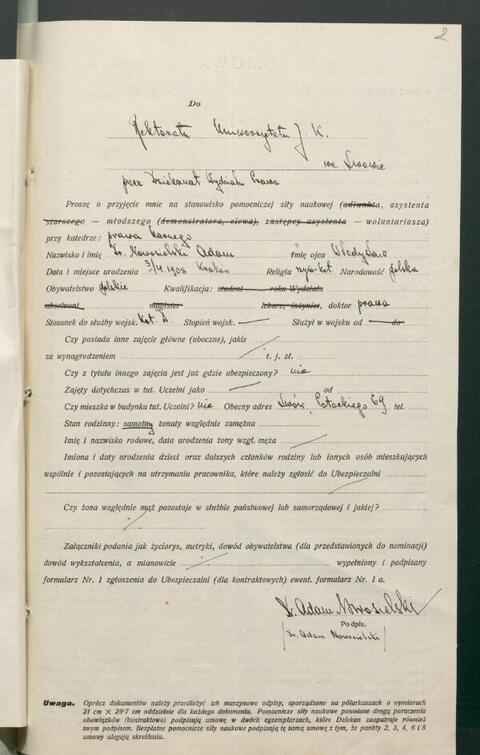 2
Do
Rektoratu Uniwersytetu J. K.
we Lwowie
przez Dziekanat Wydziału Prawa
Proszę o przyjęcie mnie na stanowisko pomocniczej siły naukowej (adjunkta, asystenta
starszego — młodszego (demonstratora, elewa), zastępcy asystenta — woluntariusza)
przy katedrze: prawa karnego
Nazwisko i imię Dr. Nowosielski Adam Imię ojca Władysław
Data i miejsce urodzenia 1908 Kraków Religia rzym-kat. Narodowość polska
Obywatelstwo polskie Kwalifikacja: student — roku Wydziału
absolwent magister lekarz, inżynier, doktor prawa
Stosunek do służby wojsk. kat. D. Stopień wojsk. — Służył w wojsku od — do
Czy posiada inne zajęcie główne (uboczne), jakie
za wynagrodzeniem t. j. zł.
Czy z tytułu innego zajęcia jest już gdzie ubezpieczony? nie
Zajęty dotychczas w tut. Uczelni jako od
Czy mieszka w budynku tut. Uczelni? nie Obecny adres Lwów, Potockiego 69 tel.
Stan rodzinny: samotny żonaty względnie zamężna
Imię i nazwisko rodowe, data urodzenia żony wzgl. męża
Imiona i daty urodzenia dzieci oraz dalszych członków rodziny lub innych osób mieszkających
wspólnie i pozostających na utrzymaniu pracownika, które należy zgłosić do Ubezpieczalni
Czy żona względnie mąż pozostaje w służbie państwowej lub samorządowej i jakiej?
Załączniki podania jak życiorys, metryki, dowód obywatelstwa (dla przedstawionych do nominacji)
dowód wykształcenia, a mianowicie wypełniony i podpisany
formularz Nr. 1 zgłoszenia do Ubezpieczalni (dla kontraktowych) ewent. formularz Nr. 1 a.
Dr. Adam Nowosielski
Podpis.
(Dr. Adam Nowosielski)
Uwaga. Oprócz dokumentów należy przedłożyć ich maszynowe odpisy, sporządzone na półarkuszach o wymiarach
21 cm × 29·7 cm oddzielnie dla każdego dokumentu. Pomocnicze siły naukowe powołane drogą poruczenia
obowiązków (kontraktowo) podpisują umowę w dwóch egzemplarzach, które Dziekan zaopatruje również
swym podpisem. Bezpłatne pomocnicze siły naukowe podpisują tę samą umowę z tem, że punkty 2, 3, 4, 6 i 8
umowy ulagają skreślenia.